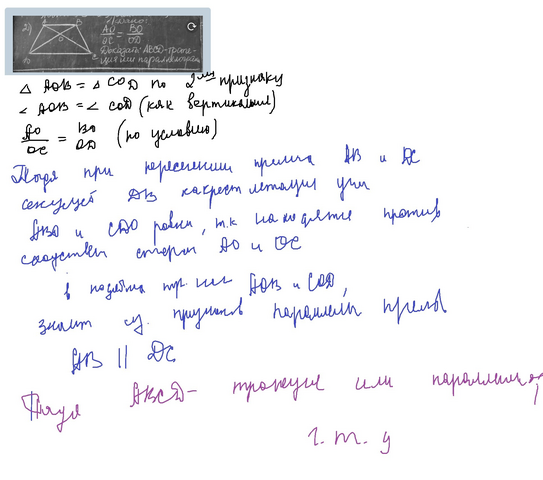 2) A B Дано:
AO/OC = BO/OD
O
Доказать: ABCD-трапе-
D C ция или параллелограмм
△ AOB = △ COD по 2му признаку
∠ AOB = ∠ COD (как вертикальные)
AO/OC = BO/OD (по условию)
Тогда при пересечении прямых AB и DC
секущей DB накрест лежащие углы
ABO и CDO равны, т.к находятся против
сходственных сторон AO и OC
в подобных тр. AOB и COD,
значит признак паралл прямых
AB || DC
Тогда ABCD - трапеция или параллелогр
ч. т. д